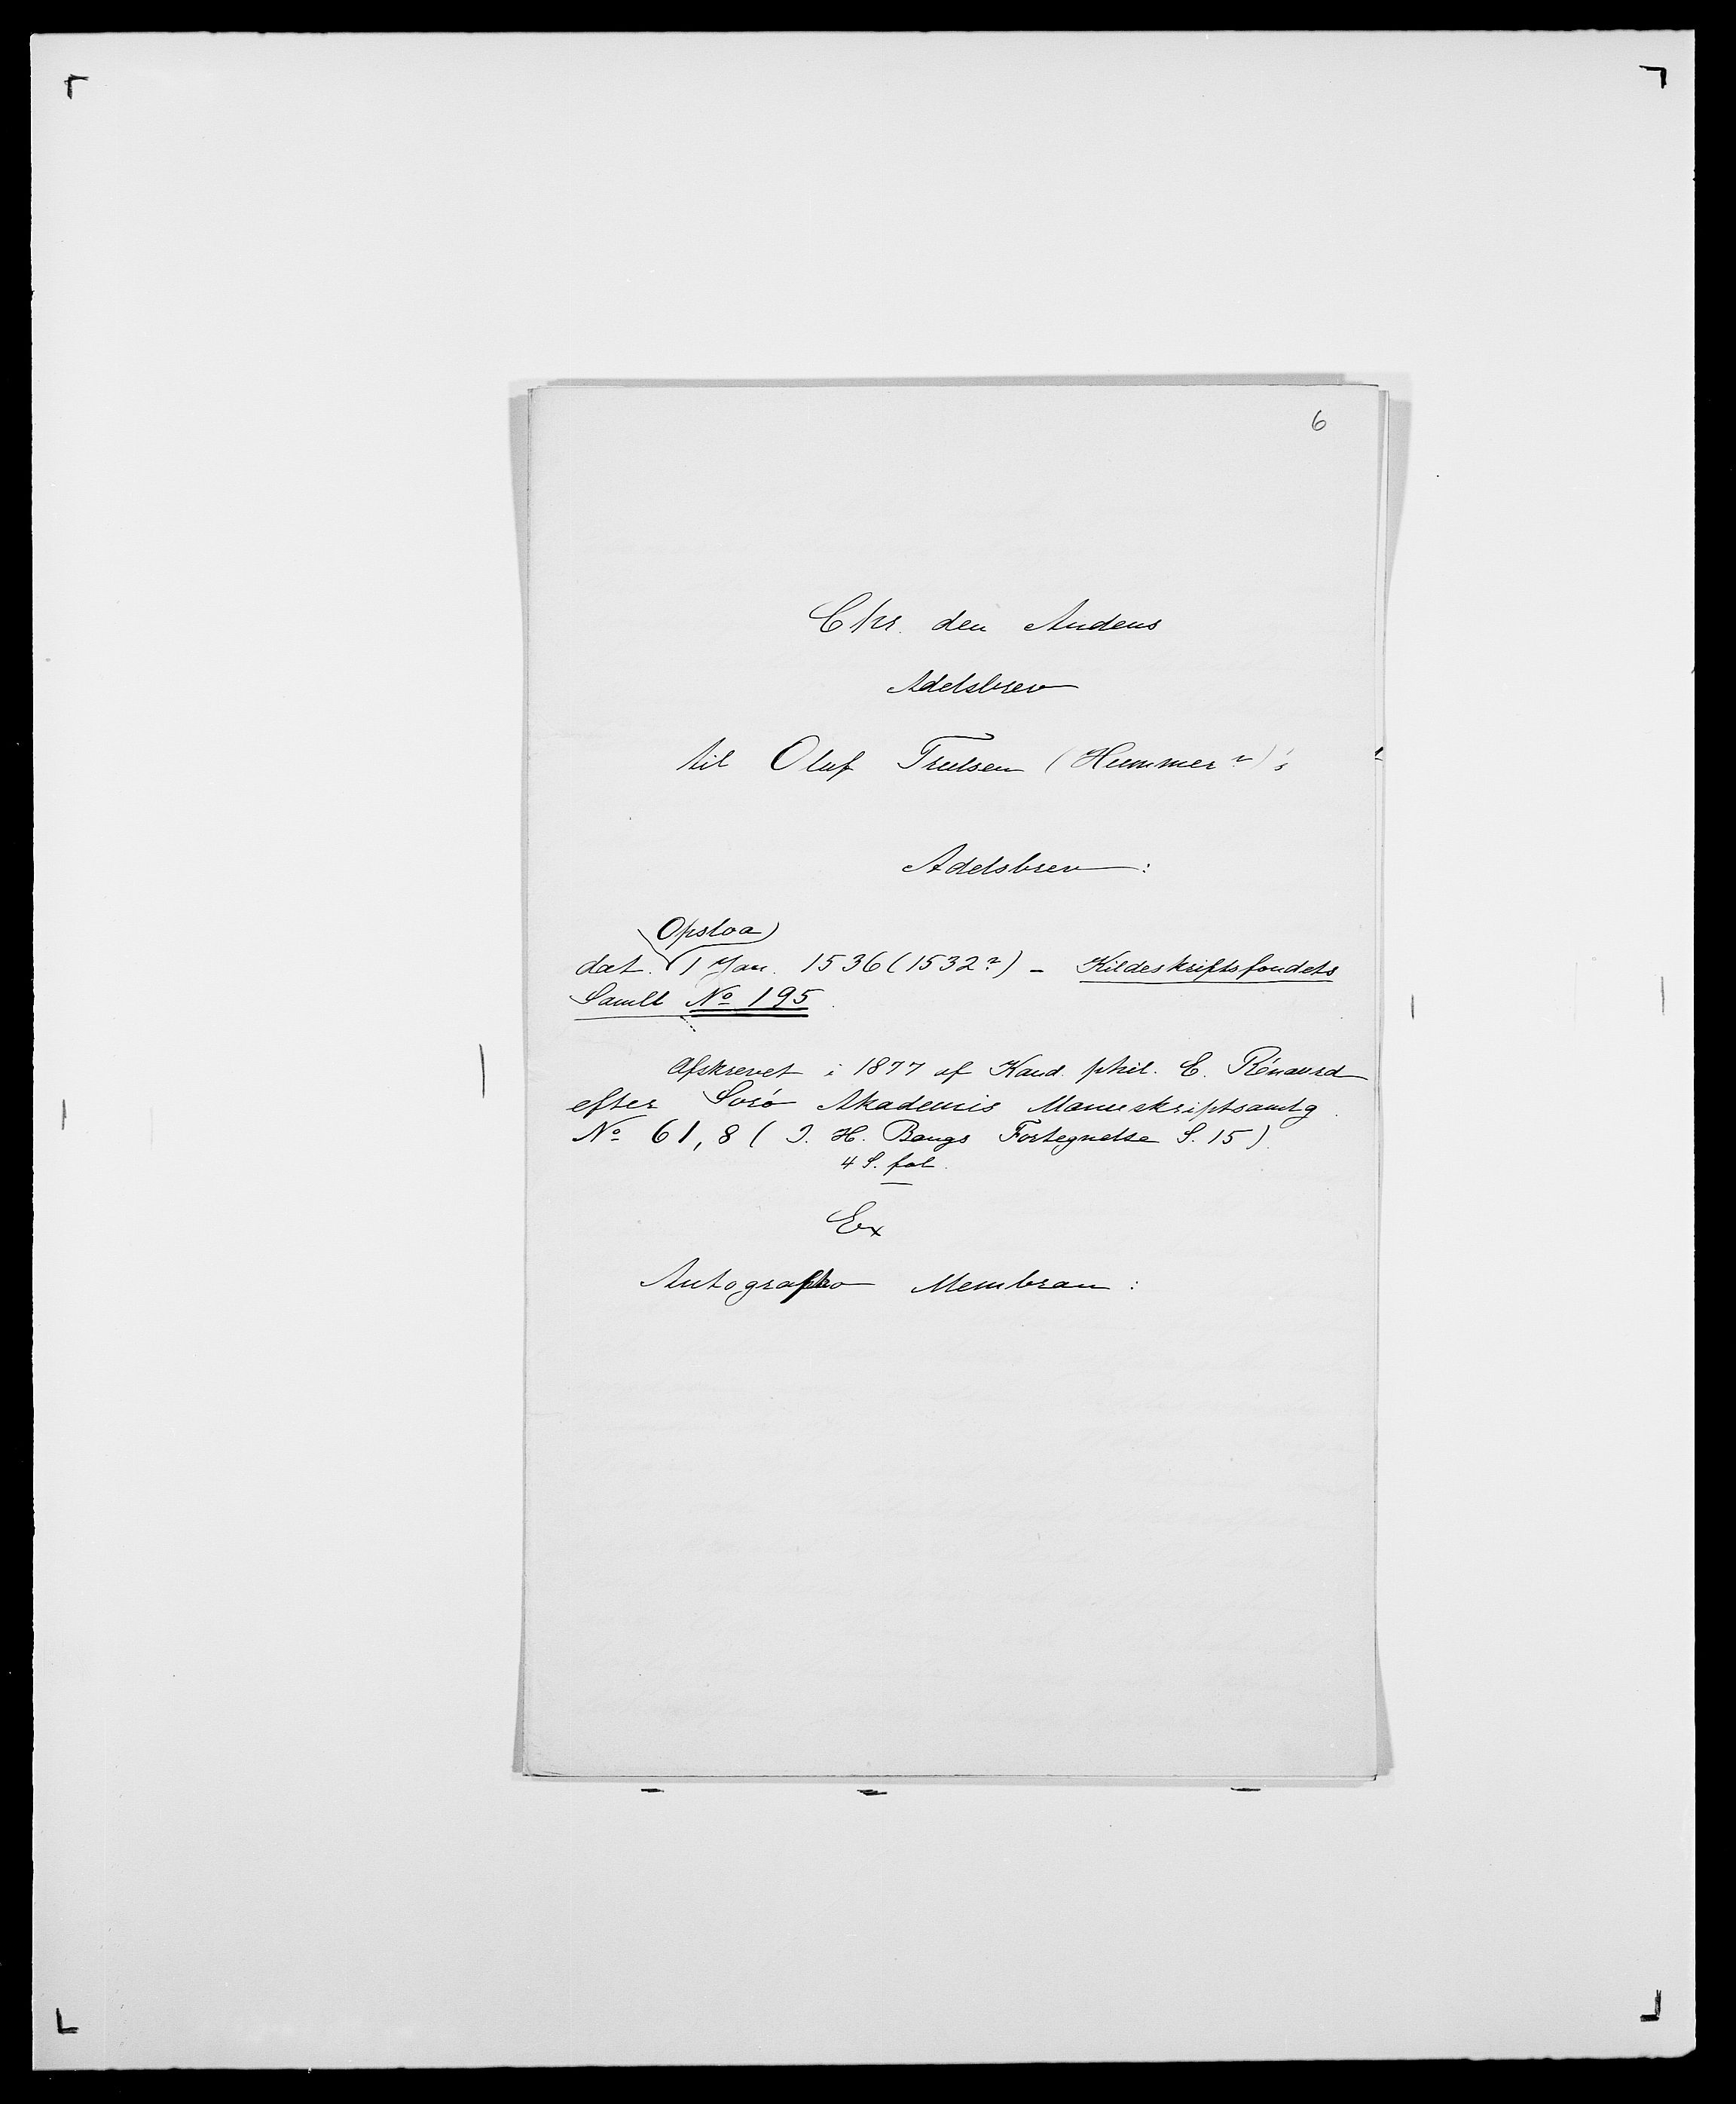 6
Chr. den Andens
Adelsbrev
til Oluf Trulsen (Hummer?)'s
Adelsbrev:
Opsloa
dat. 1 Jan. 1536 (1532?) - Kildeskriftsfondets
Samll No 195
Afskrevet i 1877 af Kand. phil. E. Rénaurd
efter Sorö Akademis Manuskriptsamlg.
No 61,8 (J. H. Bangs Fortegnelse S. 15)
4 S. fol.
Ex
Autographo Membran: